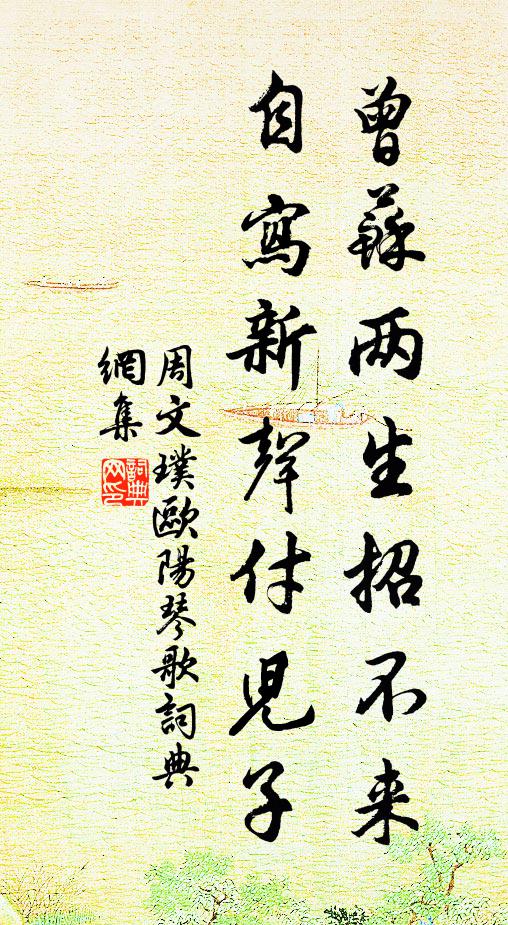 曾蘇两生招不来
自寫新聲付児子
周文璞歐陽琴歌詞典
網集
詞典网印